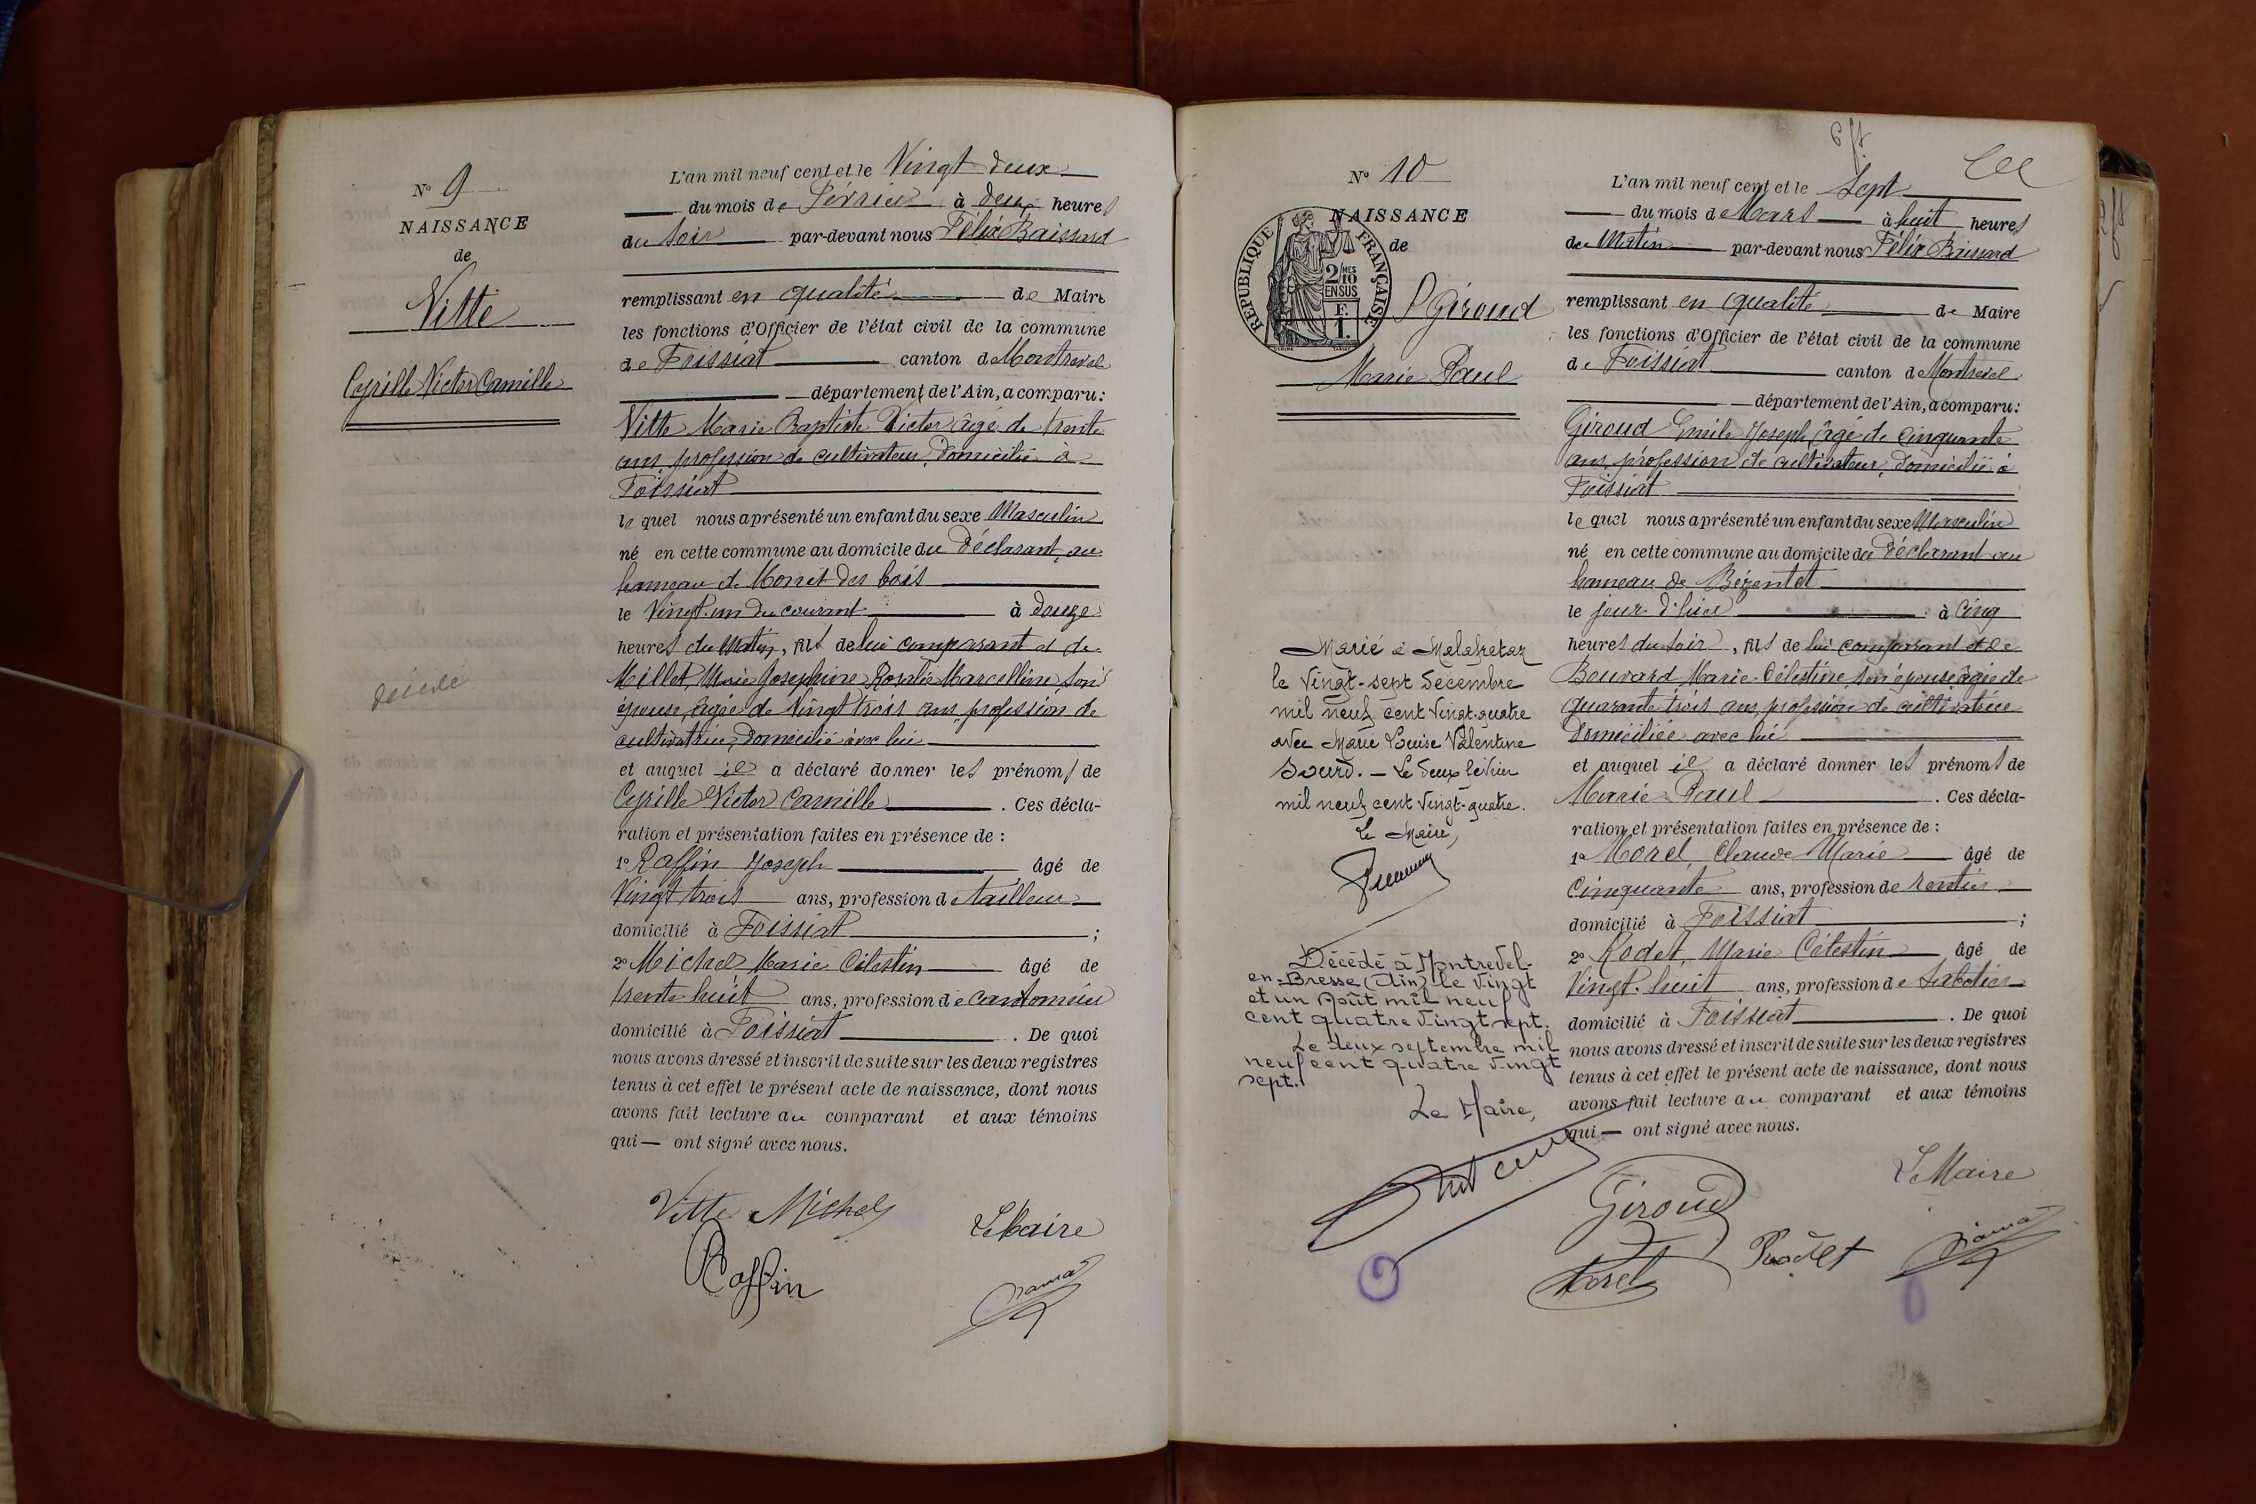 N° 9
NAISSANCE
de
Vitte
Cyrille Victor Camille
décédé
L'an mil neuf cent et le Vingt deux
du mois de Février à deux heures
du soir par-devant nous Félix Baissard
remplissant en qualité de Maire
les fonctions d'Officier de l'état civil de la commune
de Foissiat canton de Montrevel
département de l'Ain, a comparu:
Vitte Marie Baptiste Victor âgé de trente
ans, profession de cultivateur, domicilié à
Foissiat
le quel nous a présenté un enfant du sexe Masculin
né en cette commune au domicile du Déclarant, au
hameau de des bois
le Vingt-un du courant à douze
heures du Matin, fils de lui comparant et de
Millet, Marie Josephine Rosalie Marcelline, son
épouse, âgée de Vingt trois ans, profession de
cultivatrice, domicilié avec lui
et auquel il a déclaré donner les prénoms de
Cyrille Victor Camille . Ces décla-
ration et présentation faites en présence de :
1° Raffin Joseph âgé de
Vingt trois ans, profession de tailleur
domicilié à Foissiat ;
2° Michel Marie Célestin âgé de
trente huit ans, profession de cantonnier
domicilié à Foissiat . De quoi
nous avons dressé et inscrit de suite sur les deux registres
tenus à cet effet le présent acte de naissance, dont nous
avons fait lecture au comparant et aux témoins
qui — ont signé avec nous.
Vitte Michel Le Maire
Raffin
N° 10
NAISSANCE
de
RÉPUBLIQUE FRANÇAISE
2/10 MES
EN SUS
F.
1.
Giroud
Marie Paul
Marié à Malafretaz
le Vingt-sept Décembre
mil neuf cent Vingt-quatre
avec Marie Louise Valentine
Sourd. — Le deux
mil neuf cent Vingt-quatre.
Le Maire,
Décédé à Montrevel-
en-Bresse (Ain) le Vingt
et un Août mil neuf
cent quatre Vingt sept.
Le deux septembre mil
neuf cent quatre Vingt
sept.
Le Maire,
L'an mil neuf cent et le Sept
du mois de Mars à huit heures
du Matin par-devant nous Félix Baissard
remplissant en qualité de Maire
les fonctions d'Officier de l'état civil de la commune
de Foissiat canton de Montrevel
département de l'Ain, a comparu:
Giroud Emile Joseph, âgé de Cinquante
ans, profession de cultivateur, domicilié à
Foissiat
le quel nous a présenté un enfant du sexe Masculin
né en cette commune au domicile du Déclarant au
hameau de Bézentet
le jour d'hier à Cinq
heures du soir, fils de lui comparant et de
Bouvard Marie-Célestine son épouse âgée de
quarante trois ans, profession de cultivatrice
Domiciliée avec lui
et auquel il a déclaré donner les prénoms de
Marie Paul . Ces décla-
ration et présentation faites en présence de :
1° Morel, Claude Marie âgé de
Cinquante ans, profession de rentier
domicilié à Foissiat ;
2° Rodet, Marie Célestin âgé de
Vingt-huit ans, profession de sabotier
domicilié à Foissiat . De quoi
nous avons dressé et inscrit de suite sur les deux registres
tenus à cet effet le présent acte de naissance, dont nous
avons fait lecture au comparant et aux témoins
qui — ont signé avec nous.
Le Maire
Giroud
Morel Rodet